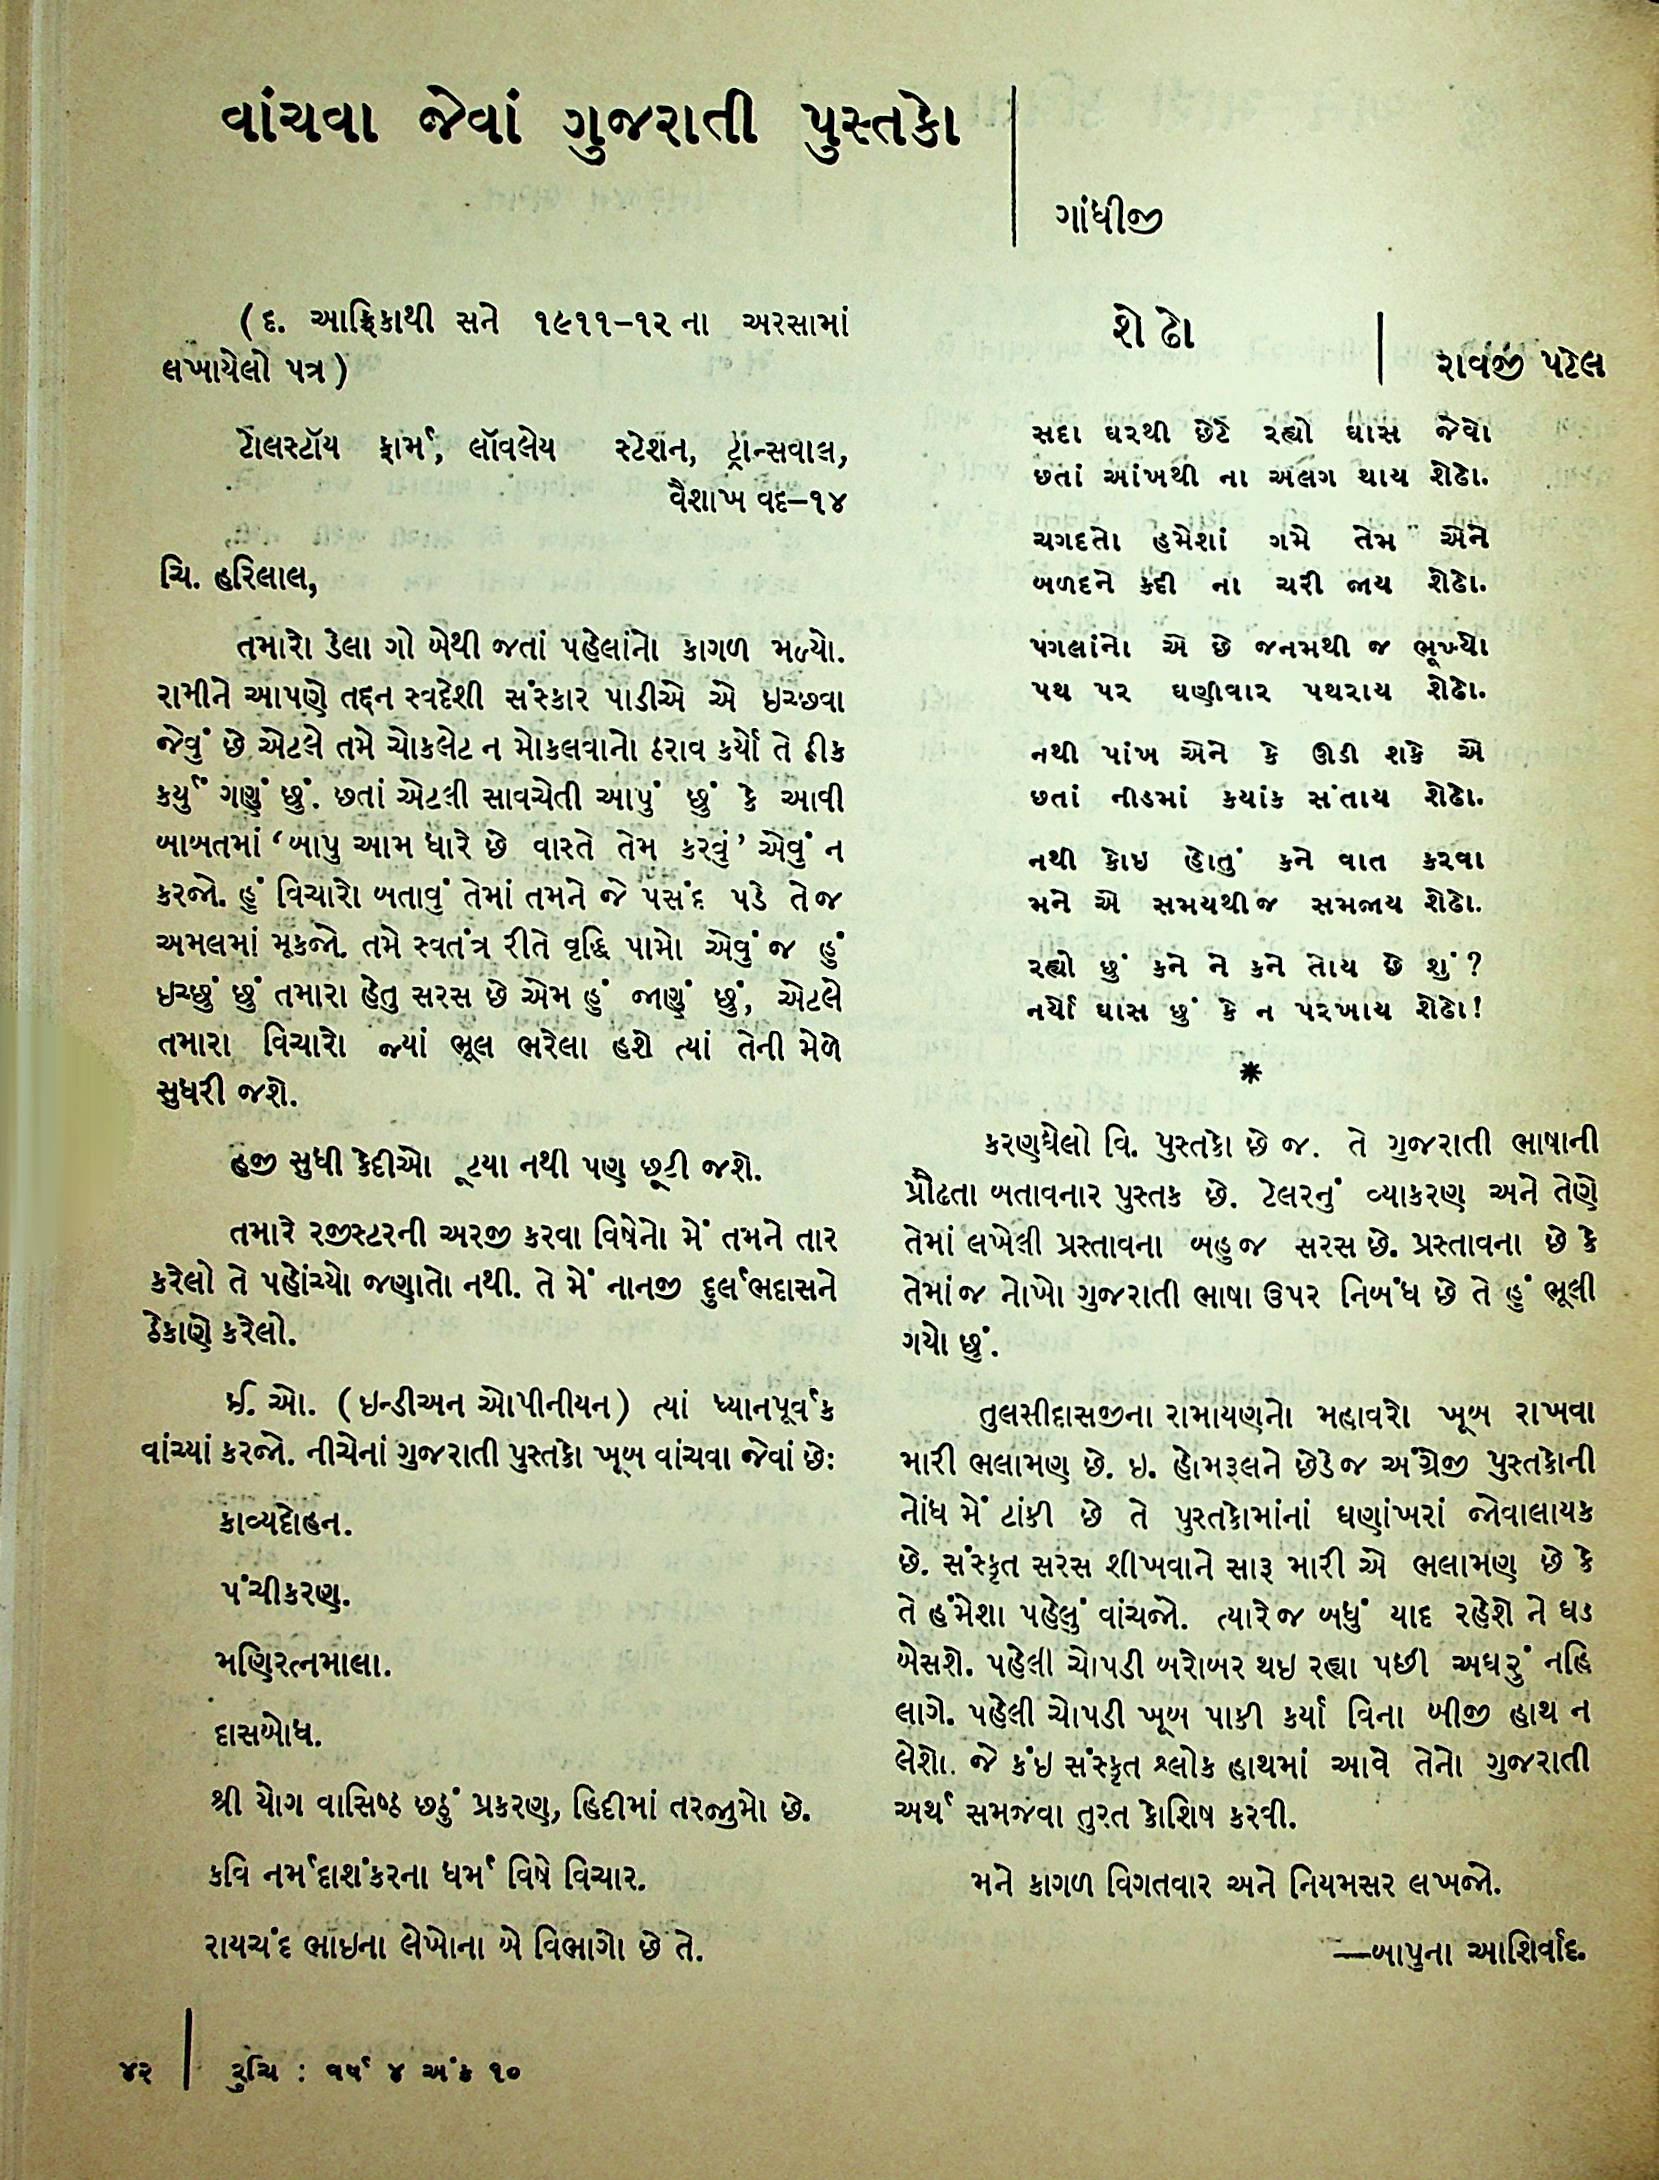 વાંચવા જેવાં ગુજરાતી પુસ્તકો
ગાંધીજી
(દ. આફ્રિકાથી સને ૧૯૧૧–૧૨ ના અરસામાં
લખાયેલો પત્ર)
ટોલસ્ટૉય ફાર્મ, લૉવલેય સ્ટેશન, ટ્રાન્સવાલ,
વૈશાખ વદ–૧૪
ચિ. હરિલાલ,
તમારો ડેલા ગો બેથી જતાં પહેલાંનો કાગળ મળ્યો.
રામીને આપણે તદ્દન સ્વદેશી સંસ્કાર પાડીએ એ ઇચ્છવા
જેવું છે એટલે તમે ચોકલેટ ન મોકલવાનો ઠરાવ કર્યો તે ઠીક
કર્યું ગણું છું. છતાં એટલી સાવચેતી આપું છું કે આવી
બાબતમાં ‘બાપુ આમ ધારે છે વાસ્તે તેમ કરવું’ એવું ન
કરજો. હું વિચારો બતાવું તેમાં તમને જે પસંદ પડે તેજ
અમલમાં મૂકજો. તમે સ્વતંત્ર રીતે વૃદ્ધિ પામો એવું જ હું
ઇચ્છું છું તમારા હેતુ સરસ છે એમ હું જાણું છું, એટલે
તમારા વિચારો જ્યાં ભૂલ ભરેલા હશે ત્યાં તેની મેળે
સુધરી જશે.
હજી સુધી કેદીઓ ૂટયા નથી પણ છૂટી જશે.
તમારે રજીસ્ટરની અરજી કરવા વિષેનો મેં તમને તાર
કરેલો તે પહોંચ્યો જણાતો નથી. તે મેં નાનજી દુર્લભદાસને
ઠેકાણે કરેલો.
ઈ. ઓ. (ઇન્ડીઅન ઓપીનીયન) ત્યાં ધ્યાનપૂર્વક
વાંચ્યાં કરજો. નીચેનાં ગુજરાતી પુસ્તકો ખૂબ વાંચવા જેવાં છેઃ
કાવ્યદોહન.
પંચીકરણ.
મણિરત્નમાલા.
દાસબોધ.
શ્રી યોગ વાસિષ્ઠ છઠ્ઠું પ્રકરણ, હિંદીમાં તરજુમો છે.
કવિ નર્મદાશંકરના ધર્મ વિષે વિચાર.
રાયચંદ ભાઇના લેખોના બે વિભાગો છે તે.
શેઢો
રાવજી પટેલ
સદા ઘરથી છેટે રહ્યો ઘાસ જેવો
છતાં આંખથી ના અલગ થાય શેઢો.
ચગદતો હમેશાં ગમે તેમ એને
બળદને કદી ના ચરી જાય શેઢો.
પગલાંનો એ છે જનમથી જ ભૂખ્યો
પથ પર ઘણીવાર પથરાય શેઢો.
નથી પાંખ એને કે ઊડી શકે એ
છતાં નીડમાં કયાંક સંતાય શેઢો.
નથી કોઇ હોતું કને વાત કરવા
મને એ સમયથીજ સમજાય શેઢો.
રહ્યો છું કને ને કને તોય છે શું?
નર્યો ઘાસ છું કે ન પરખાય શેઢો!
*
કરણઘેલો વિ. પુસ્તકો છે જ. તે ગુજરાતી ભાષાની
પ્રૌઢતા બતાવનાર પુસ્તક છે. ટેલરનું વ્યાકરણ અને તેણે
તેમાં લખેલી પ્રસ્તાવના બહુજ સરસ છે. પ્રસ્તાવના છે કે
તેમાંજ નોખો ગુજરાતી ભાષા ઉપર નિબંધ છે તે હું ભૂલી
ગયો છું.
તુલસીદાસજીના રામાયણનો મહાવરો ખૂબ રાખવા
મારી ભલામણ છે. ઇ. હોમરૂલને છેડેજ અંગ્રેજી પુસ્તકોની
નોંધ મેં ટાંકી છે તે પુસ્તકોમાંનાં ઘણાંખરાં જોવાલાયક
છે. સંસ્કૃત સરસ શીખવાને સારૂ મારી એ ભલામણ છે કે
તે હંમેશા પહેલું વાંચજો. ત્યારેજ બધું યાદ રહેશે ને ઘડ
બેસશે. પહેલી ચોપડી બરોબર થઇ રહ્યા પછી અઘરું નહિ
લાગે. પહેલી ચોપડી ખૂબ પાકી કર્યા વિના બીજી હાથ ન
લેશો. જે કંઇ સંસ્કૃત શ્લોક હાથમાં આવે તેનો ગુજરાતી
અર્થ સમજવા તુરત કોશિષ કરવી.
મને કાગળ વિગતવાર અને નિયમસર લખજો.
—બાપુના આશિર્વાદ.
૪૨ | રુચિ : વર્ષ ૪ અંક ૧૦